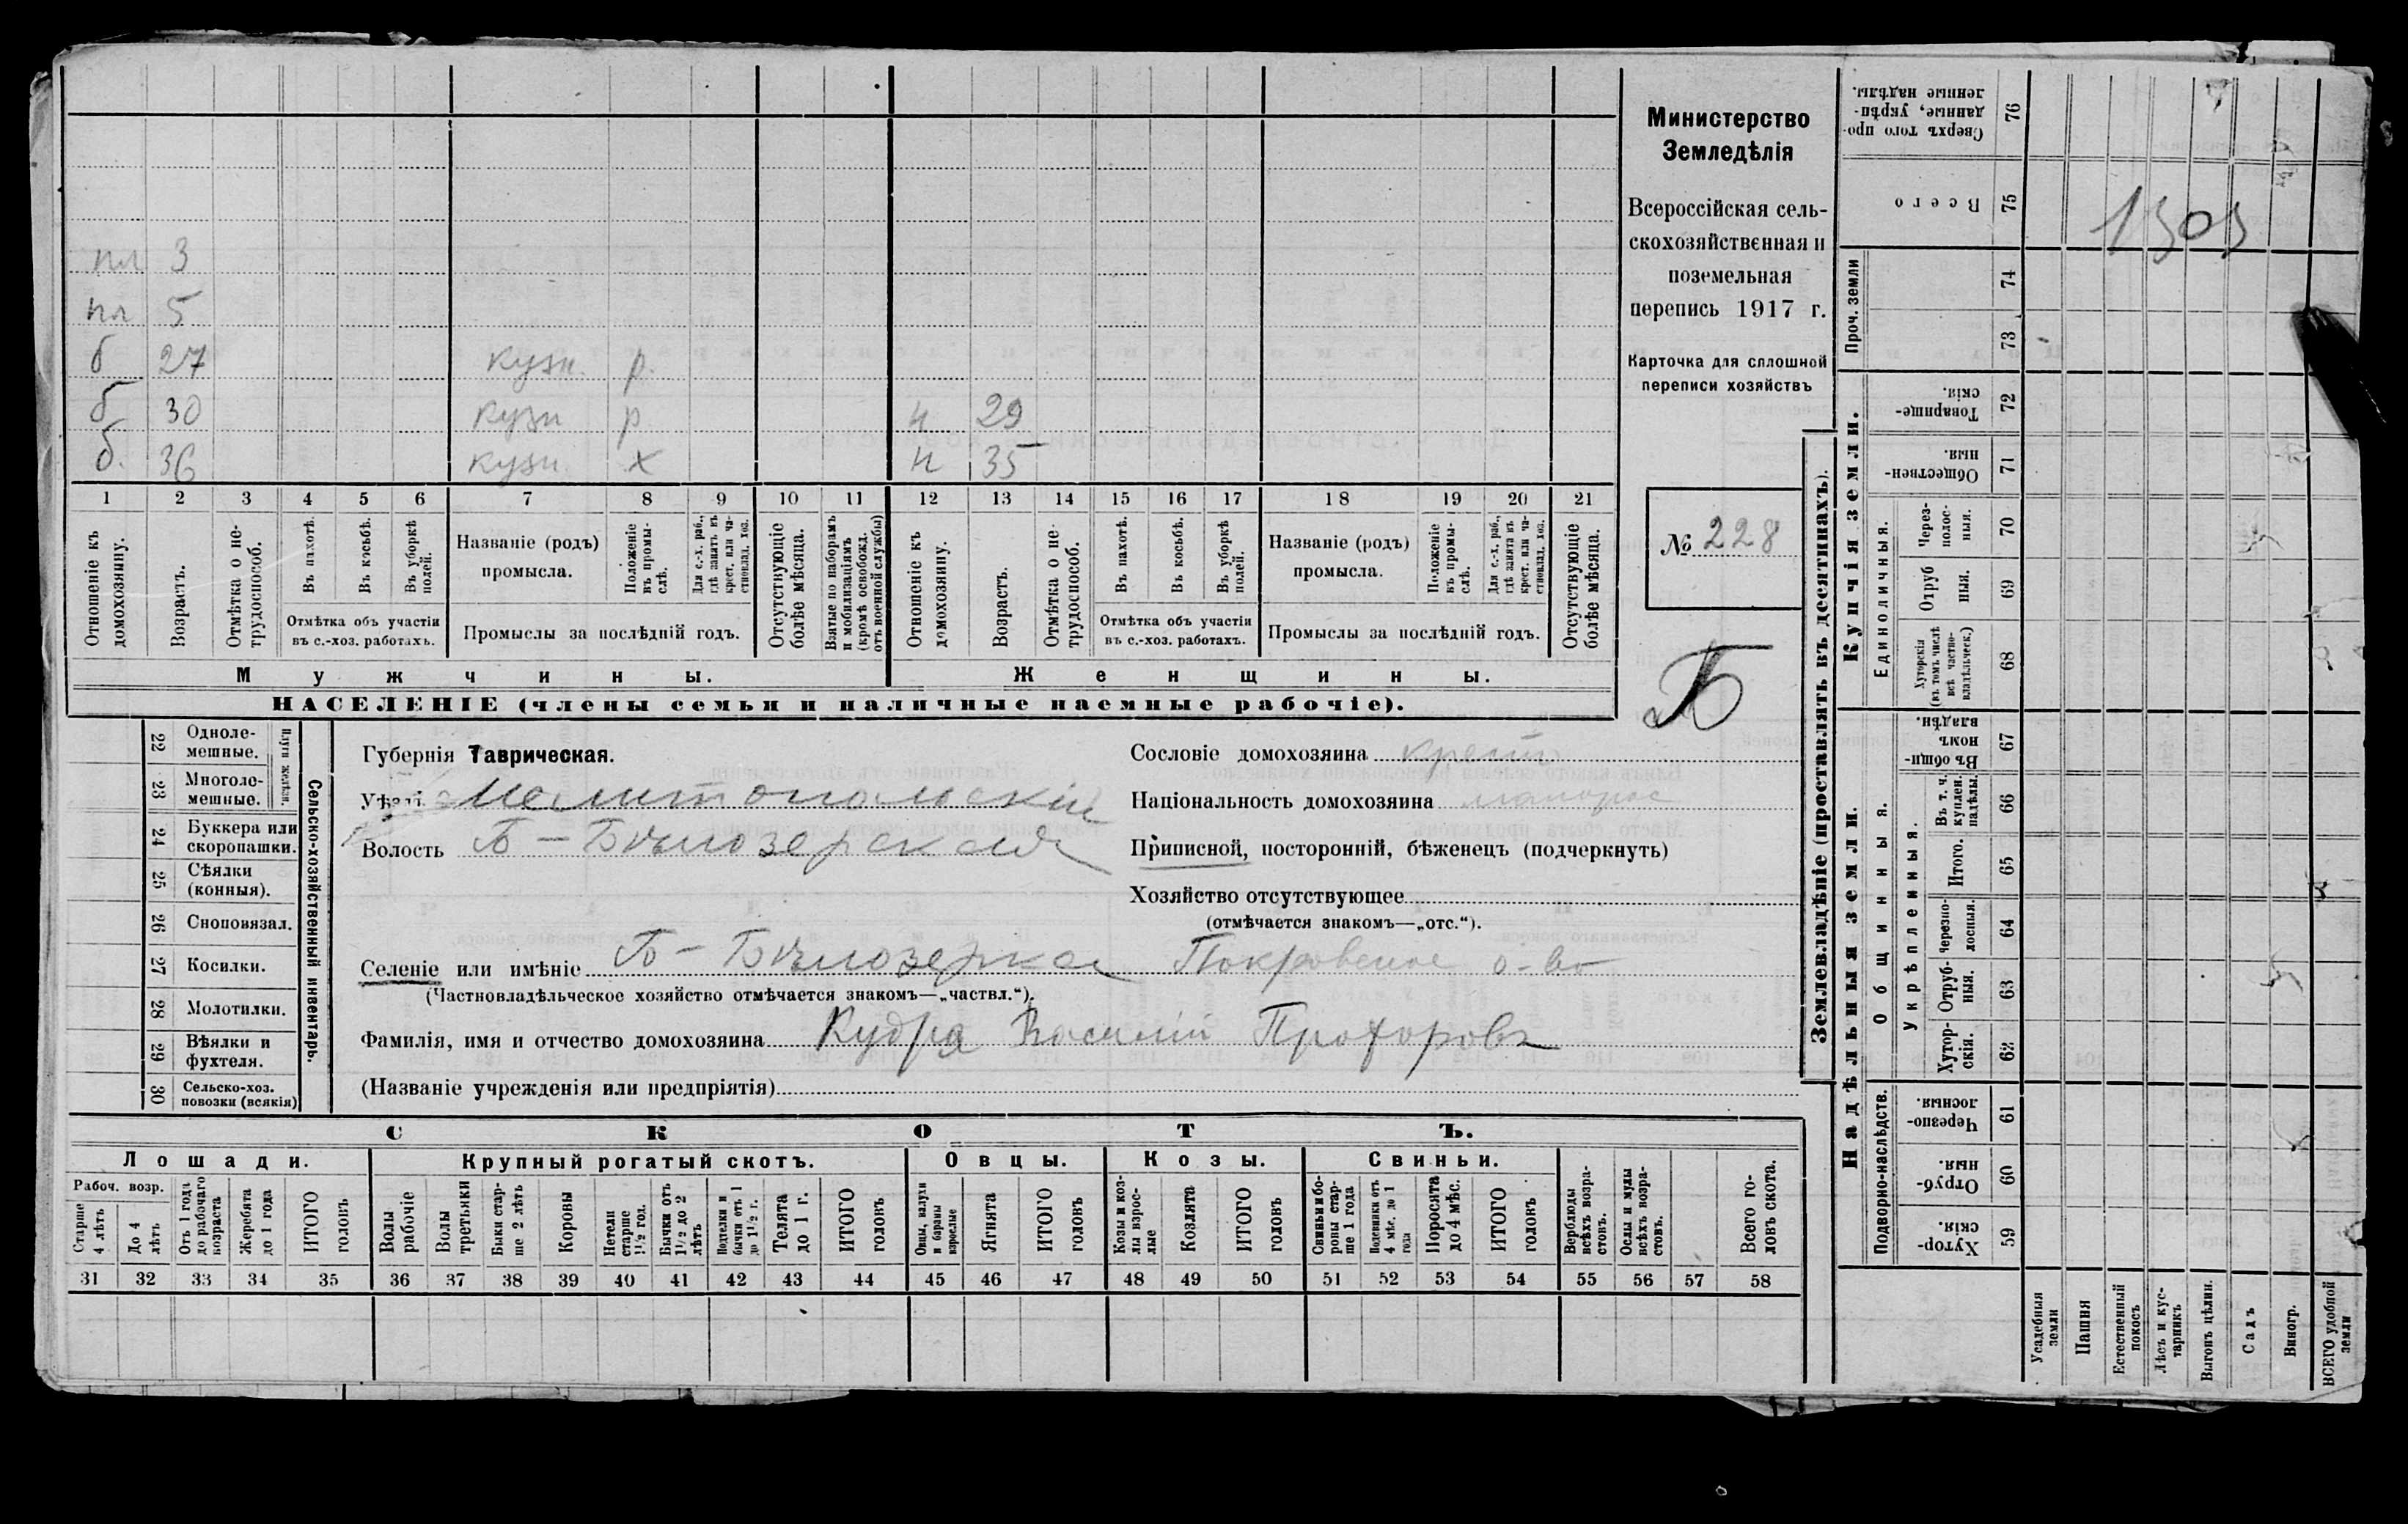 Министерство
Земледѣлія
Всероссійская сель-
скохозяйственная и
поземельная
перепись 1917 г.
Карточка для сплошной
переписи хозяйствъ
№ 228
Б
пл 3
пл 5
б 27 кузн. р.
б 30 кузн р н 29
б. 36 кузн х н 35
1 2 3 4 5 6 7 8 9 10 11 12 13 14 15 16 17 18 19 20 21
Отношеніе къ домохозяину.
Возрастъ.
Отмѣтка о не-трудоспособ.
Въ пахотѣ.
Въ косьбѣ.
Въ уборкѣ полей.
Отмѣтка объ участіи въ с.-хоз. работахъ.
Названіе (родъ) промысла.
Положеніе въ промы-слѣ.
Для с.-х. раб., гдѣ занятъ въ крест. или ча-стновлад. хоз.
Промыслы за послѣдній годъ.
Отсутствующіе болѣе мѣсяца.
Взятые по наборамъ и мобилизаціямъ (кромѣ освобожд. отъ военной службы)
Отношеніе къ домохозяину.
Возрастъ.
Отмѣтка о не-трудоспособ.
Въ пахотѣ.
Въ косьбѣ.
Въ уборкѣ полей.
Отмѣтка объ участіи въ с.-хоз. работахъ.
Названіе (родъ) промысла.
Положеніе въ промы-слѣ.
Для с.-х. раб., гдѣ занята въ крест. или ча-стновлад. хоз.
Промыслы за послѣдній годъ.
Отсутствующіе болѣе мѣсяца.
Мужчины. Женщины.
НАСЕЛЕНІЕ (члены семьи и наличные наемные рабочіе).
Сельско-хозяйственный инвентарь.
Плуги желѣзн.
22 Одноле-мешные.
23 Многоле-мешные.
24 Буккера или скоропашки.
25 Сѣялки (конныя).
26 Сноповязал.
27 Косилки.
28 Молотилки.
29 Вѣялки и фухтеля.
30 Сельско-хоз. повозки (всякія)
Губернія Таврическая.
Уѣздъ Мелитопольскій
Волость Б-Бѣлозерская
Сословіе домохозяина крест
Національность домохозяина малорос
Приписной, посторонній, бѣженецъ (подчеркнуть)
Хозяйство отсутствующее
(отмѣчается знакомъ—„отс.“).
Селеніе или имѣніе Б-Бѣлозерка Покровское о-во
(Частновладѣльческое хозяйство отмѣчается знакомъ—„частвл.“).
Фамилія, имя и отчество домохозяина Кудря Василій Прохоровъ
(Названіе учрежденія или предпріятія)
СКОТЪ.
Лошади. Крупный рогатый скотъ. Овцы. Козы. Свиньи.
Рабоч. возр.
Старше 4 лѣтъ
До 4 лѣтъ
Отъ 1 года до рабочаго возраста
Жеребята до 1 года
ИТОГО головъ
Волы рабочіе
Волы третьяки
Быки стар-ше 2 лѣтъ
Коровы
Нетели старше 1½ год.
Бычки отъ 1½ до 2 лѣтъ
Подтелки и бычки отъ 1 до 1½ г.
Телята до 1 г.
ИТОГО головъ
Овцы, валухи и бараны взрослые
Ягнята
ИТОГО головъ
Козы и коз-лы взрос-лые
Козлята
ИТОГО головъ
Свиньи и бо-ровы стар-ше 1 года
Подсвинки отъ 4 мѣс. до 1 года
Поросята до 4 мѣс.
ИТОГО головъ
Верблюды всѣхъ возра-стовъ.
Ослы и мулы всѣхъ возра-стовъ.
Всего го-ловъ скота.
31 32 33 34 35 36 37 38 39 40 41 42 43 44 45 46 47 48 49 50 51 52 53 54 55 56 57 58
Землевладѣніе (проставлять въ десятинахъ).
Надѣльныя земли. Купчія земли. Проч. земли
Подворно-наслѣдств.
Общинныя.
Укрѣпленныя.
Единоличныя.
59 Хутор-скія.
60 Отруб-ныя.
61 Черезпо-лосныя.
62 Хутор-скія.
63 Отруб-ныя.
64 Черезпо-лосныя.
65 Итого.
66 Въ т. ч. куплен. надѣлы.
67 Въ общи-номъ владѣн.
68 Хуторскія (въ томъ числѣ всѣ частно-владѣльческ.)
69 Отруб ныя.
70 Через-полос-ныя.
71 Обществен-ныя.
72 Товарище-скія.
73
74
75 Всего
76 Сверхъ того про-данные, укрѣп-ленные надѣлы.
Усадебныя земли
Пашня
Естественный покосъ
Лѣсъ и кус-тарникъ
Выгонъ цѣлин.
Садъ
Виногр.
ВСЕГО удобной земли